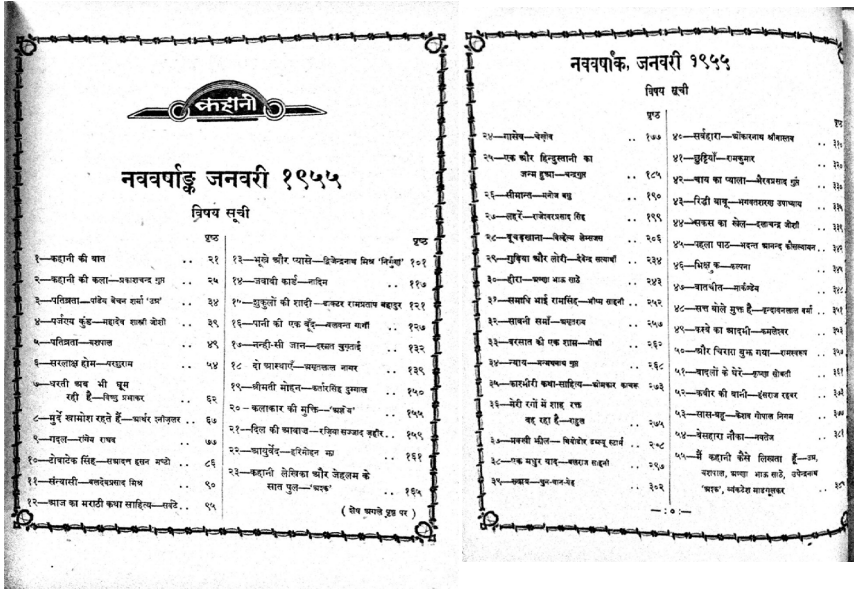 कहानी
नववर्षाङ्क जनवरी १९५५
विषय सूची
पृष्ठ
१—कहानी की बात .. २१
२—कहानी की कला—प्रकाशचन्द्र गुप्त .. २५
३—पतिव्रता—पांडेय बेचन शर्मा 'उग्र' ३४
४—पर्जण्य कुंड—महादेव शास्त्री जोशी .. ३९
५—पतिव्रता—यशपाल .. ४९
६—सरलाक्ष होम—परशुराम .. ५४
७—धरती अब भी घूम
रही है—विष्णु प्रभाकर .. ६२
८—मुर्दे खामोश रहते हैं—आर्थर श्नीज़लर .. ६७
९—गदल—रांगेय राघव .. ७७
१०—टोबाटेक सिंह—सआदत हसन मण्टो .. ८६
११—संन्यासी—बलदेवप्रसाद मिश्र .. ९०
१२—आज का मराठी कथा साहित्य—सर्वटे .. ९५
पृष्ठ
१३—भूखे और प्यासे—द्विजेन्द्रनाथ मिश्र 'निर्गुण' १०१
१४—जवाबी कार्ड—नादिम .. ११७
१५—शुकुलों की शादी—डाक्टर रामप्रताप बहादुर १२१
१६—पानी की एक बूँद—बलवन्त गार्गी .. १२७
१७—नन्ही-सी जान—इस्मत चुग़ताई .. १३२
१८ दो आस्थाएँ—अमृतलाल नागर .. १३९
१९—श्रीमती मोहन—कर्तारसिंह दुग्गाल .. १५०
२०—कलाकार की मुक्ति—'अज्ञेय' .. १५५
२१—दिल की आवाज—रज़िया सज्जाद ज़हीर .. १५९
२२—आयुर्वेद—हरिमोहन झा .. १६१
२३—कहानी लेखिका और जेहलम के
सात पुल—'अश्क' .. १६५
( शेष अगले पृष्ठ पर )
नववर्षांक, जनवरी १९५५
विषय सूची
पृष्ठ
२४—गासेव—चेख़ोव .. १७७
२५—एक और हिन्दुस्तानी का
जन्म हुआ—चन्द्रगुप्त .. १८५
२६—सीमान्त—मनोज बसु .. १९०
२७—लहरें—राजेश्वरप्रसाद सिंह .. १९९
२८—बूचड़खाना— .. २०६
२९—गुड़िया और लोरी—देवेन्द्र सत्यार्थी .. २३४
३०—हीरा—अण्णा भाऊ साठे .. २४३
३१—समाधि भाई रामसिंह—भीष्म साहनी .. २५२
३२—सावनी समाँ—अमृतराय .. २५७
३३—बरसात की एक शाम—गोर्की .. २६२
३४—न्याय—मन्मथनाथ गुप्त .. २६८
३५—काश्मीरी कथा-साहित्य—ओमकार काचरू .. २७३
३६—मेरी रगों में शाह रक्त
बह रहा है—राहुल .. २७५
३७—मक्खी झील—थियोडोर डब्ल्यू स्टार्म .. २८८
३८—एक मधुर याद—बलराज साहनी .. २९७
३९— .. ३०२
४०—सर्वहारा—ओंकारनाथ श्रीवास्तव ..
४१—छुट्टियाँ—रामकुमार ..
४२—चाय का प्याला—भैरवप्रसाद गुप्त ..
४३—रिद्दी बाबू—भगवतशरण उपाध्याय ..
४४—सर्कस का खेल—इलाचन्द्र जोशी ..
४५—पहला पाठ—भदन्त आनन्द कौसल्यायन ..
४६—भिक्षुक—कल्पना ..
४७—बातचीत—मार्कण्डेय ..
४८—सत्त बोले मुक्त है—वृन्दावनलाल वर्मा ..
४९—कस्बे का आदमी—कमलेश्वर ..
५०—और चिराग़ बुझ गया—रामस्वरूप ..
५१—बादलों के घेरे—कृष्णा सोबती ..
५२—कबीर की बानी—हंसराज रहबर ..
५३—सास-बहू—केशव गोपाल निगम ..
५४—बेसहारा नौका—नवतेज ..
५५—मैं कहानी कैसे लिखता हूँ—उग्र,
यशपाल, अण्णा भाऊ साठे, उपेन्द्रनाथ
'अश्क', व्यंकटेश माडगूलकर ..
—:०:—